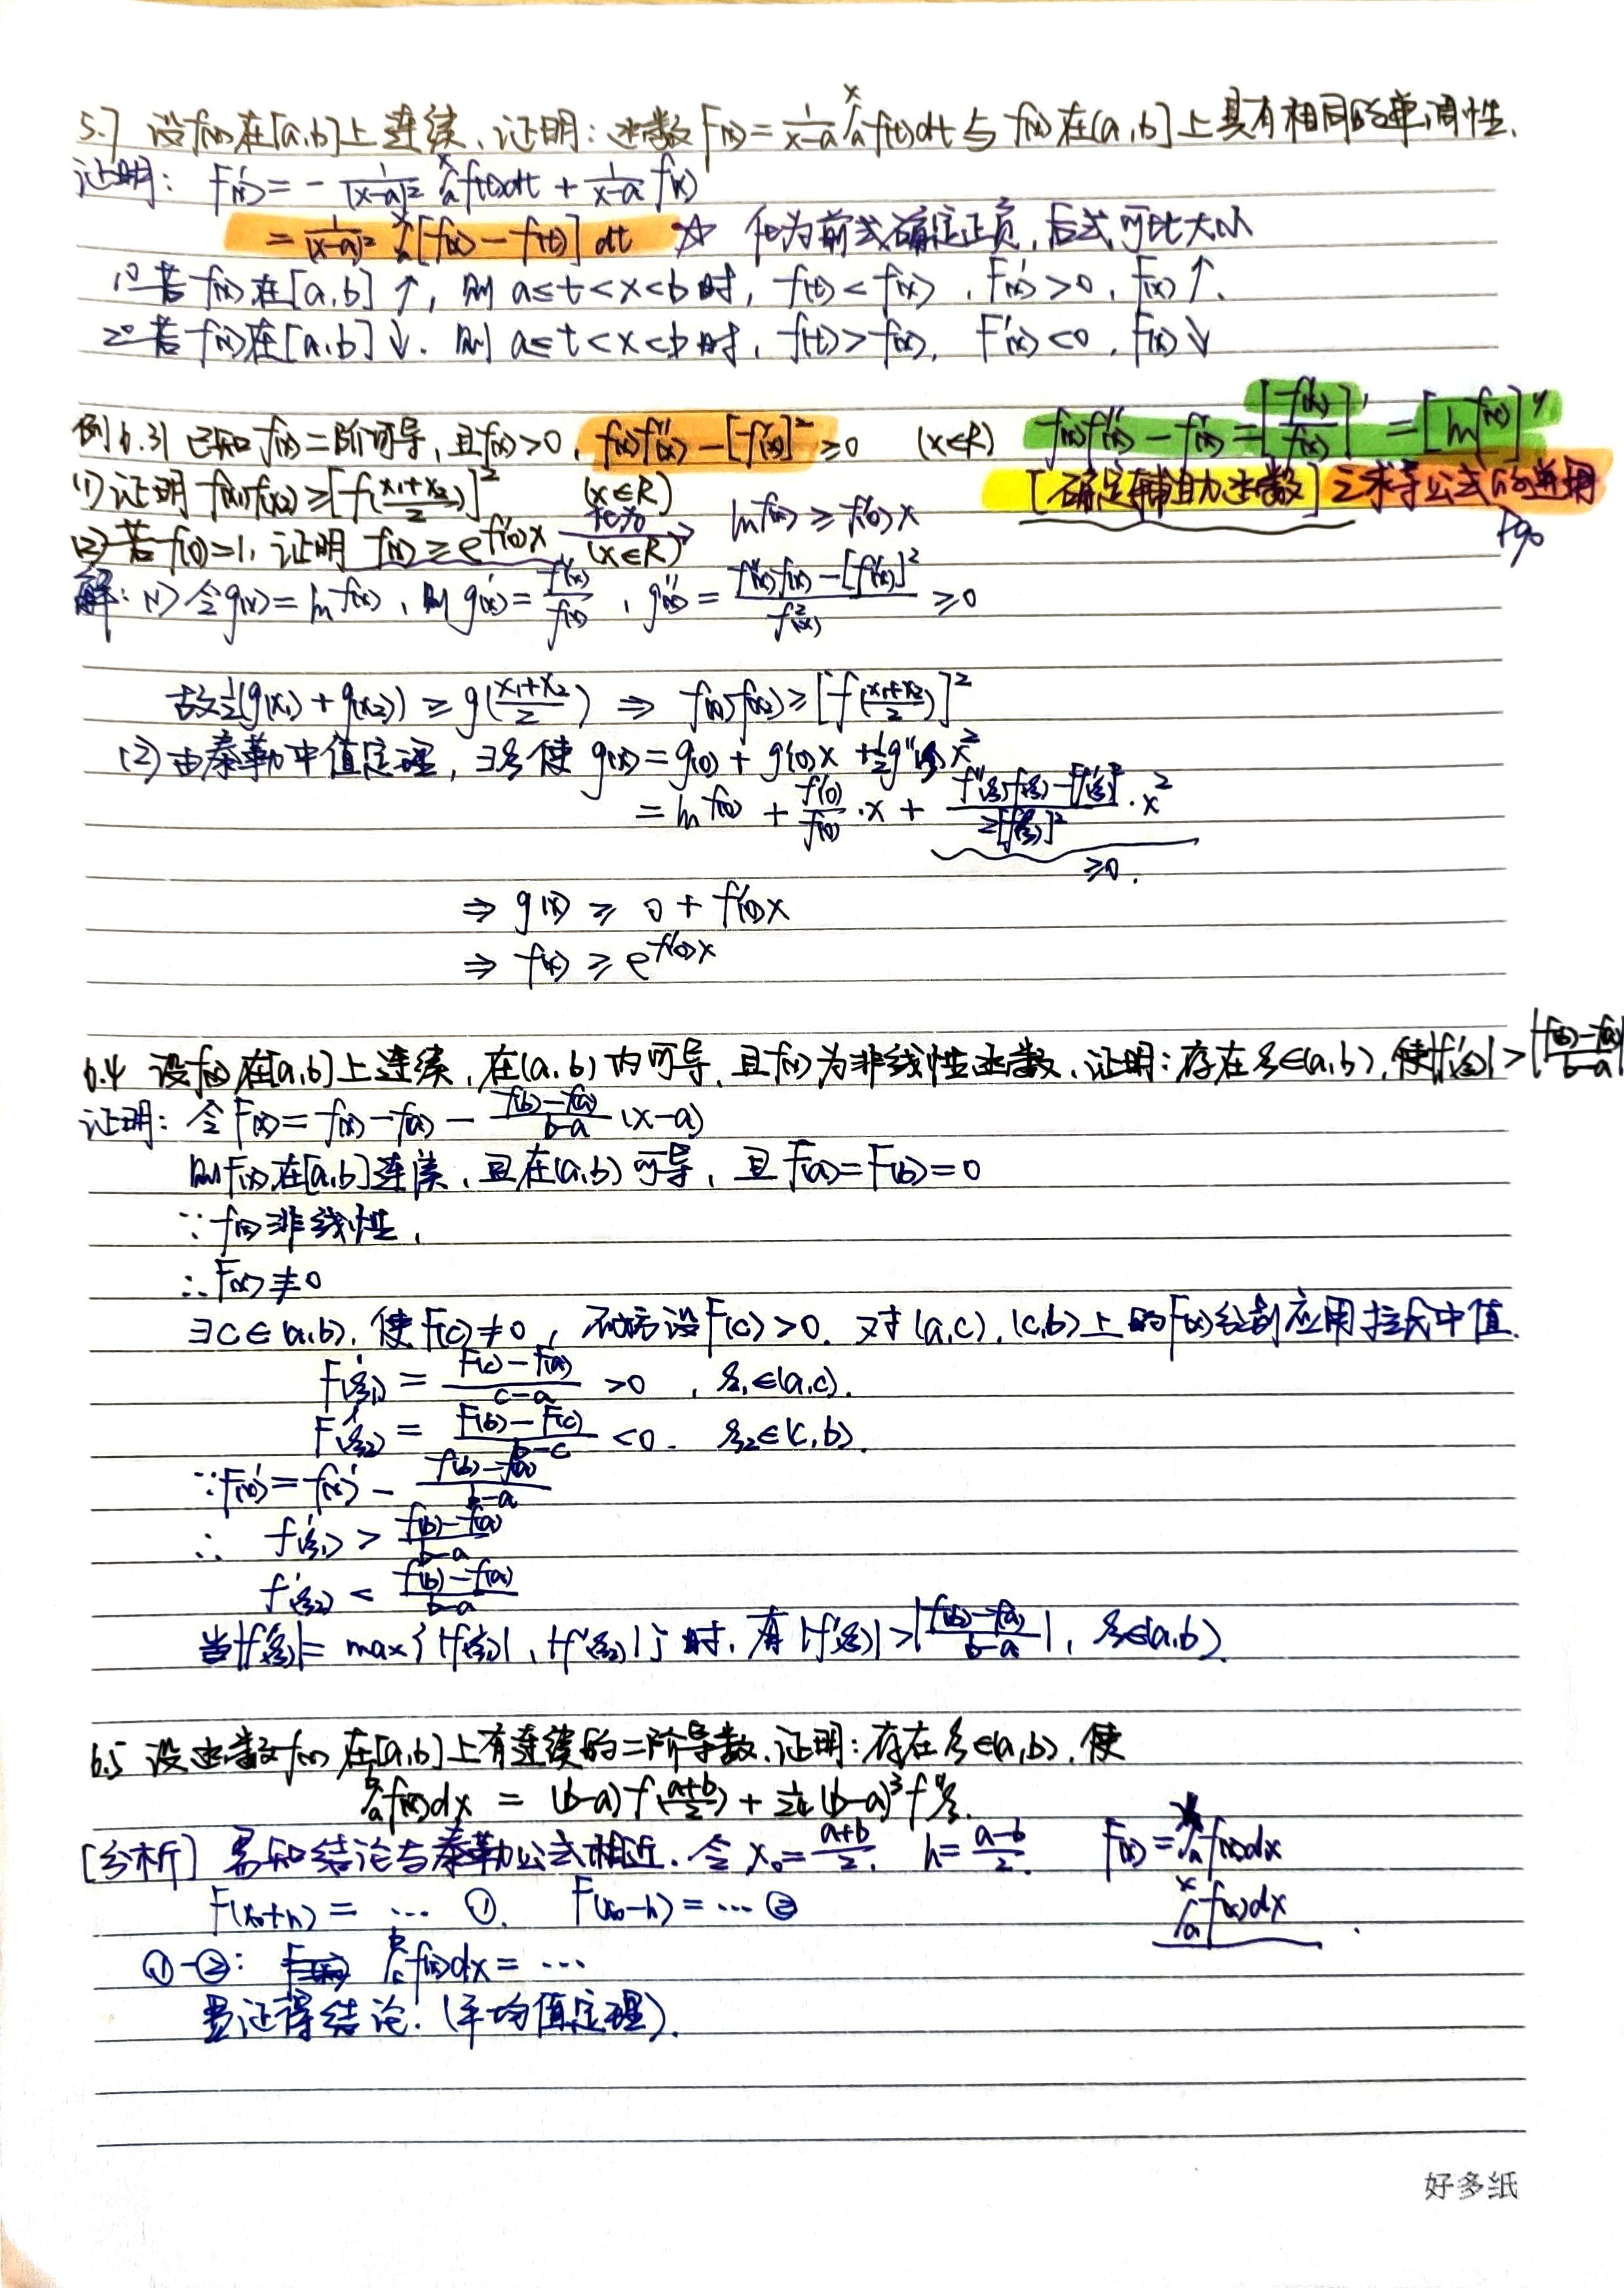 5.7 设f(x)在[a,b]上连续,证明:函数F(x)=1/(x-a)∫ₐˣf(t)dt与f(x)在(a,b]上具有相同的单调性.
证明: F'(x)=-1/(x-a)²∫ₐˣf(t)dt+1/(x-a) f(x)
=1/(x-a)²∫ₐˣ[f(x)-f(t)]dt ☆ 化为前式确定正负,后式可比大小
1° 若f(x)在[a,b]↑, 则a≤t<x<b时, f(t)<f(x), F'(x)>0, F(x)↑.
2° 若f(x)在[a,b]↓. 则a≤t<x<b时, f(t)>f(x), F'(x)<0, F(x)↓
例6.31 已知f(x)二阶可导,且f(x)>0, f(x)f''(x)-[f'(x)]²≥0 (x∈R) f(x)f''(x)-f'(x)=[f'(x)/f(x)]'=[ln f(x)]''
(1) 证明f(x₁)f(x₂)≥[f((x₁+x₂)/2)]² (x∈R) [确定辅助函数]之求导公式的逆用
P90
(2) 若f(0)=1, 证明f(x)≥e^{f'(0)x} (x∈R) 化为→ ln f(x)≥f'(0)x
解: (1) 令g(x)=ln f(x), 则g'(x)=f'(x)/f(x), g''(x)=(f''(x)f(x)-[f'(x)]²)/f²(x)≥0
故½(g(x₁)+g(x₂))≥g((x₁+x₂)/2) ⇒ f(x₁)f(x₂)≥[f((x₁+x₂)/2)]²
(2) 由泰勒中值定理, ∃ξ使g(x)=g(0)+g'(0)x+½g''(ξ)x²
=ln f(0)+f'(0)/f(0)·x+(f''(ξ)f(ξ)-[f'(ξ)]²)/2[f(ξ)]²·x²
≥0.
⇒ g(x)≥0+f'(0)x
⇒ f(x)≥e^{f'(0)x}
6.4 设f(x)在[a,b]上连续,在(a,b)内可导,且f(x)为非线性函数,证明:存在ξ∈(a,b),使|f'(ξ)|>|(f(b)-f(a))/(b-a)|
证明: 令F(x)=f(x)-f(a)-(f(b)-f(a))/(b-a)(x-a)
则F(x)在[a,b]连续,且在(a,b)可导,且F(a)=F(b)=0
∵f(x)非线性,
∴F(x)≢0
∃c∈(a,b),使F(c)≠0,不妨设F(c)>0. 对(a,c),(c,b)上的F(x)分别应用拉氏中值.
F'(ξ₁)=(F(c)-F(a))/(c-a)>0, ξ₁∈(a,c).
F'(ξ₂)=(F(b)-F(c))/(b-c)<0. ξ₂∈(c,b).
∵F'(x)=f'(x)-(f(b)-f(a))/(b-a)
∴ f'(ξ₁)>(f(b)-f(a))/(b-a)
f'(ξ₂)<(f(b)-f(a))/(b-a)
当|f'(ξ)|=max{|f'(ξ₁)|,|f'(ξ₂)|}时,有|f'(ξ)|>|(f(b)-f(a))/(b-a)|, ξ∈(a,b).
6.5 设函数f(x)在[a,b]上有连续的二阶导数,证明:存在ξ∈(a,b),使
∫ₐᵇf(x)dx=(b-a)f((a+b)/2)+1/24(b-a)³f''(ξ).
[分析] 易知结论与泰勒公式相近. 令x₀=(a+b)/2, h=(a-b)/2. F(x)=∫ₐf(x)dx
F(x₀+h)=… ①. F(x₀-h)=… ② ∫ₐˣf(x)dx.
①-②: ∫ₐᵇf(x)dx=…
易证得结论.(平均值定理).
好多纸